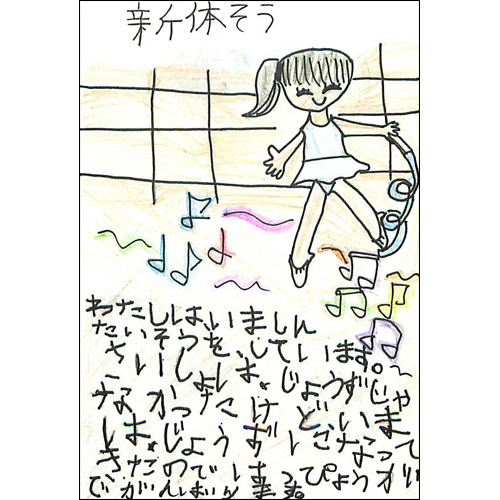 新体そう
わたしはいましん
たいそうをしています。
さいしょは、じょうずじゃ
なかったけどいま
は、じょうずになって
きたので
ぴょうかい
でがんばります。